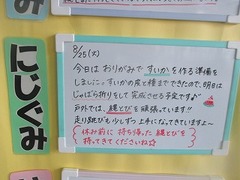 にじぐみ
8/25(火)
今日は おりがみで すいか を作る準備を
しました。すいかの皮と種まで できたので、明日は
じゃばら折りをして 完成させる予定です♪
戸外では、縄とびを頑張っています!!
走り跳びも 少しずつ 上手になってきていますよ〜
休み前に 持ち帰った 縄とびを
持ってきて くださいね☆